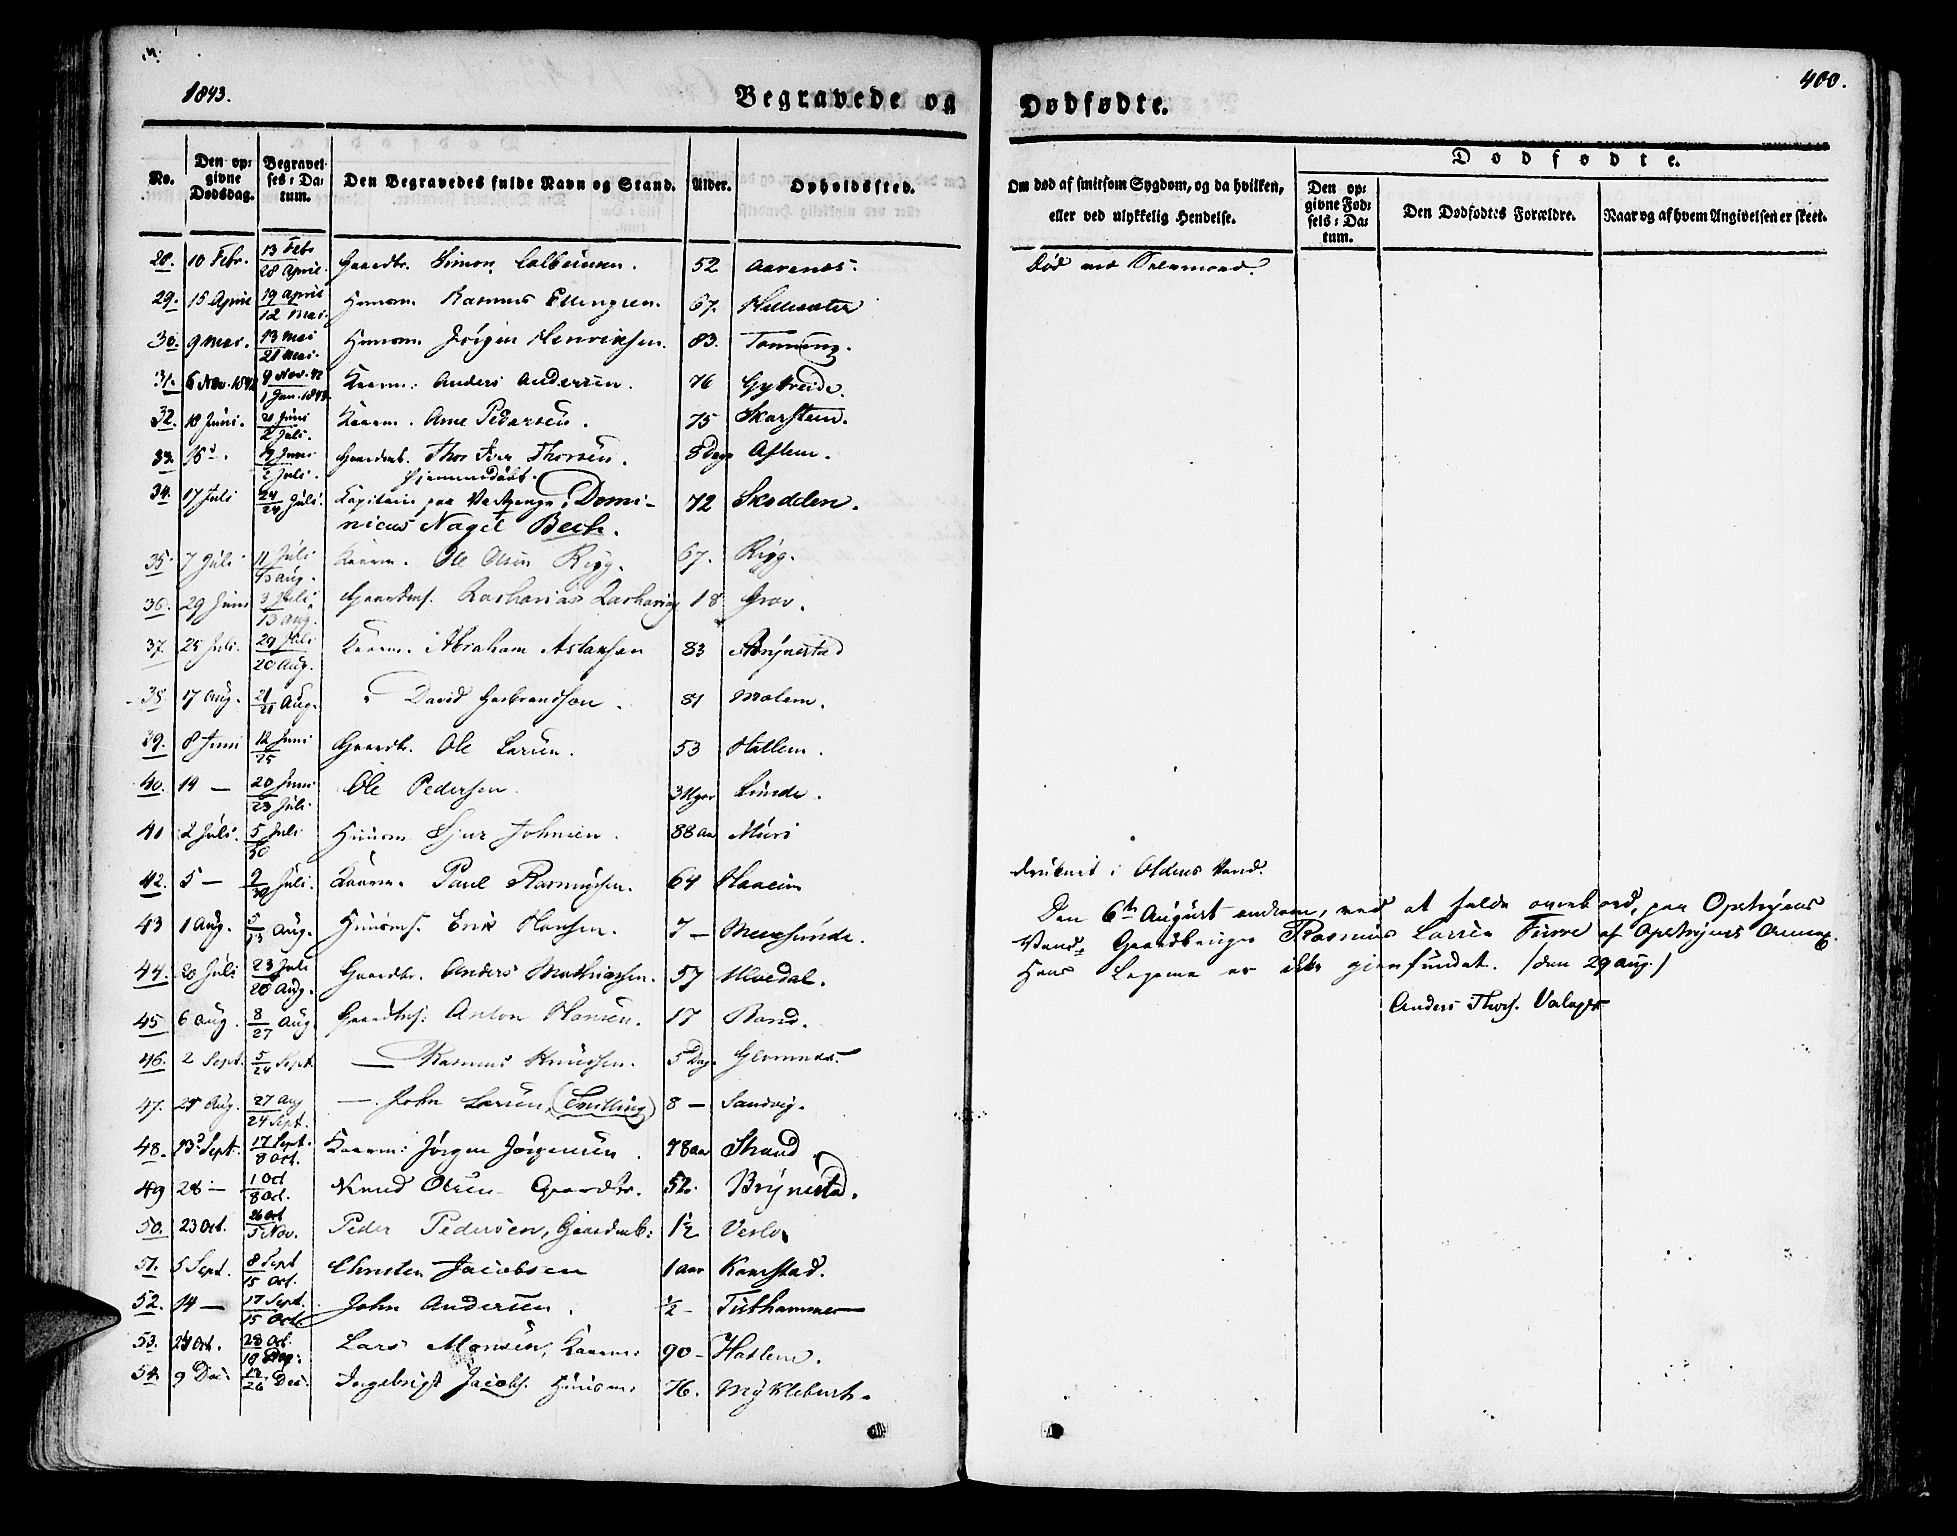 1843.
Begravede og
Dødfødte.
400.
No.
Den op-
givne
Dødsdag.
Begravel-
ses-Da-
tum.
Den Begravedes fulde Navn og Stand.
Alder.
Opholdssted.
Om død af smitsom Sygdom, og da hvilken,
eller ved ulykkelig Hendelse.
Dødfødte.
Den op-
givne Fød-
sels-Da-
tum.
Den Dødfødtes Forældre.
Naar og af hvem Angivelsen er skeet.
28. 10 Febr. 13 Febr 28 April. Gaardbr. Simon 52 Aarenes.
29. 15 April 19 April 12 Mai. Huusm. Rasmus Ellingsen. 67.
30. 9 Mai. 13 Mai 21 Mai. Huusm. Jørgen Henriksen. 83. Tonning.
31. 6 Nov. 1842 9 Nov. 42 1 Jan. 1843. Kaarm: Anders Andersen. 76 Gytreide.
32. 18 Juni. 21 Juni 2 Juli. Kaarm. Arne Pedersen. 75 Skarstein.
33. 16 d. 19 Juni 2 Juli. Gaardmb. Thor Iver Thorsen. 8 Dage
hjemmedøbt.
34. 17 Juli 24 24 Juli. Kapitain paa Vartpenge, Domi-
nicus Nagel Bech. 72 Skodden.
35. 7 Juli 11 Juli 13 Aug. Kaarm. Ole Olsen Rygg. 67. Rygg.
36. 29 Juni 3 Juli 13 Aug. Gaardms. Zacharias 18 Grov.
37. 25 Juli. 29 Juli 20 Aug. Kaarm. Abraham Aslaksen 83 Brynestad
38. 17 Aug. 21 21 Aug. " David Gerbrandsøn. 81 Molem.
39. 8 Juni 12 Juni 25 Gaardbr. Ole Larsen. 53 Hatlem.
40. 14 — 20 Juni 23 Juli Ole Pedersen. 3 Uger Lunde.
41 2 Juli. 5 Juli 30 Huusm Sjur Johnsen. 88 Aar Muri
42. 5 — 9 30 Juli. Kaarm. Paul Rasmussen. 64 Haaeim
43 1 Aug. 5 13 Aug. Huusms. Erik Hansen. 7 —
druknet i Oldens Vand.
44. 20 Juli 23 Juli 20 Aug. Gaardbr. Anders Mathiassen. 57 Ulvedal.
Den 6te August omkom, ved at falde overbord, paa Opstryens
Vand, Gaardbruger Rasmus Larsen Furre af Opstryens Annex.
Hans Legeme er ikke gjenfundet. (den 29 Aug.)
Anders Thors.
45 6 Aug. 8 27 Aug. Gaardbms: Anton Hansen. 17 Rand.
46. 2 Sept. 5 24 Sept. — Rasmus Knudsen. 5 Dage
47. 25 Aug. 27 Aug 24 Sept. — John Larsen, (Tvilling) 8 — Sandvig.
48. 13 Sept. 17 Sept. 8 Oct. Kaarm: Jørgen Jørgensen. 78 Aar Strand
49 28 — 1 Oct 8 Oct. Knud Olsen Gaardbr. 52. Brynestad.
50. 23 Oct. 26 Oct 5 Nov. Peder Pedersen, Gaardmb: 1½
51. 5 Sept. 8 Sept 15 Oct. Christen Jacobsen 1 Aar
52. 14 — 17 Sept. 15 Oct John Andersen. ½ — Tisthammer
53. 24 Oct. 28 Oct. Lars Monsen, Kaarm: 90 —
54. 9 Dec. 26 Dec. Ingebrigt Jacobs. Huusm: 76. Myklebust.